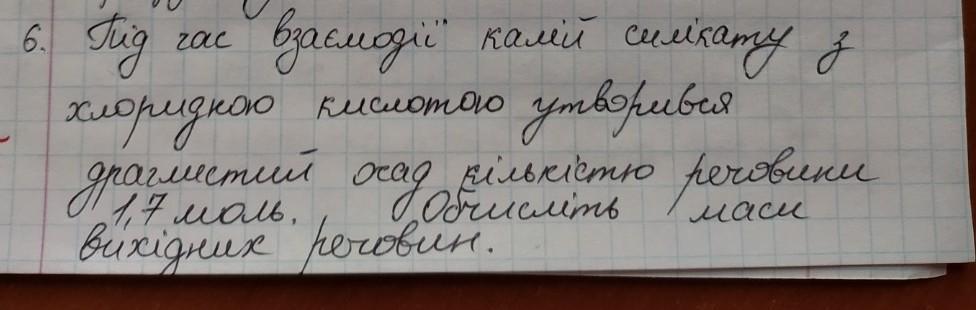 6. Під час взаємодії калій силікату з
хлоридною кислотою утворився
драглистий осад кількістю речовини
1,7 моль. Обчисліть маси
вихідних речовин.